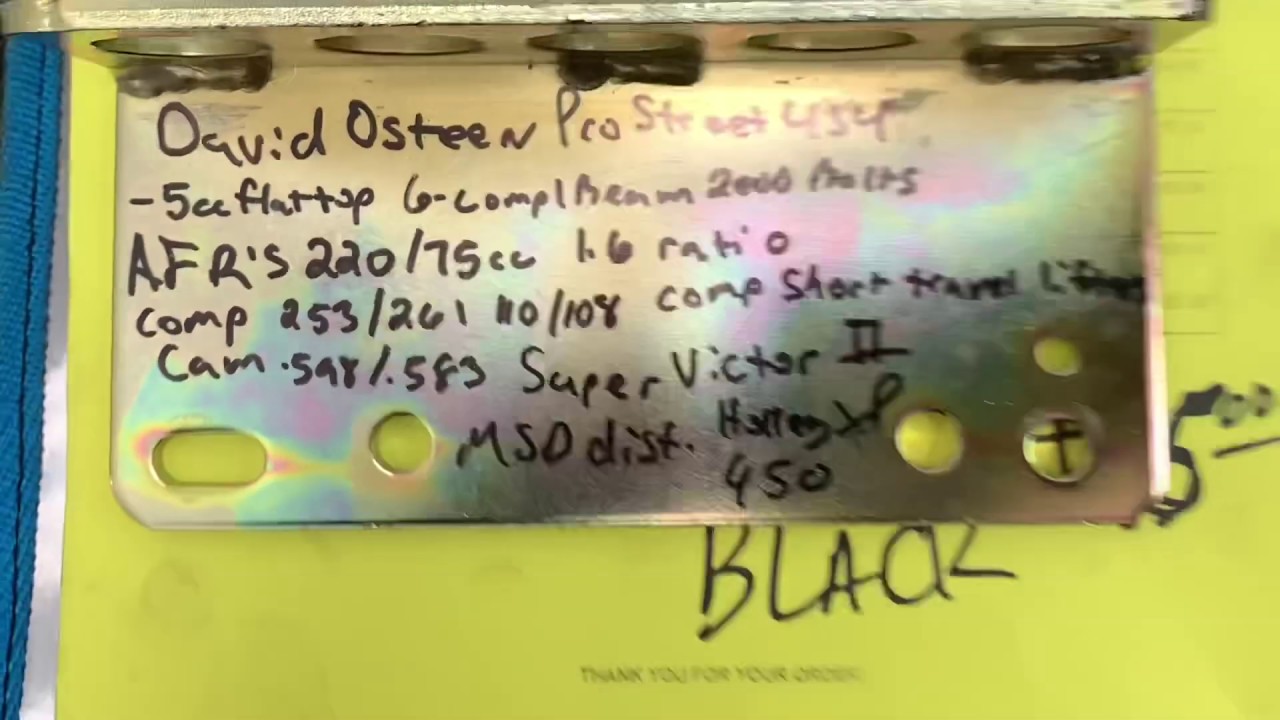 David Osteen Pro Street 454
-5cc flattop 6-comp 2000
AFR'S 220/75cc 1.6 ratio
Comp 253/261 110/108 comp Short travel Lifters
Cam .598/.583 Super Victor II
MSD dist. Holley XP
950
5.00
BLACK
THANK YOU FOR YOUR ORDER!